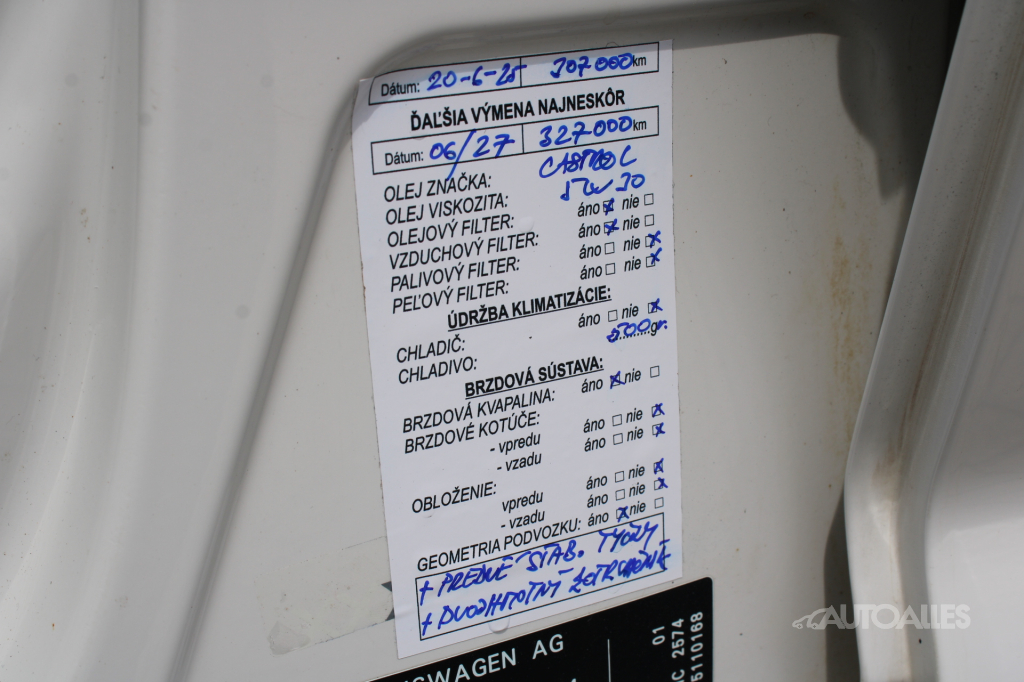 Dátum: 20-6-25 307000 km
ĎAĽŠIA VÝMENA NAJNESKÔR
Dátum: 06/27 327000 km
OLEJ ZNAČKA: CASTROL
OLEJ VISKOZITA: 5W30
OLEJOVÝ FILTER: áno nie
VZDUCHOVÝ FILTER: áno nie
PALIVOVÝ FILTER: áno nie
PEĽOVÝ FILTER: áno nie
ÚDRŽBA KLIMATIZÁCIE:
CHLADIČ: áno nie
CHLADIVO: 500 gr.
BRZDOVÁ SÚSTAVA:
BRZDOVÁ KVAPALINA: áno nie
BRZDOVÉ KOTÚČE:
- vpredu áno nie
- vzadu áno nie
OBLOŽENIE:
vpredu áno nie
- vzadu áno nie
GEOMETRIA PODVOZKU: áno nie
+ PREDNÉ STAB. TYČKY
+ DVOJHMOTNÝ ZOTRVAČNÍK
WAGEN AG
01
2574
5110168
AUTOALLES